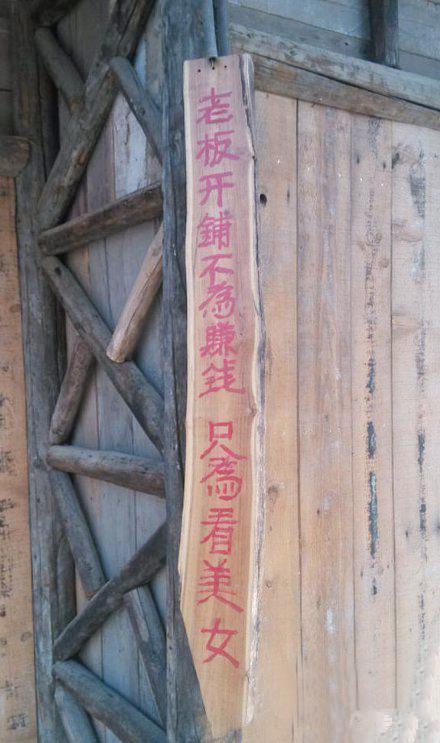 老板开鋪不為賺钱 只為看美女